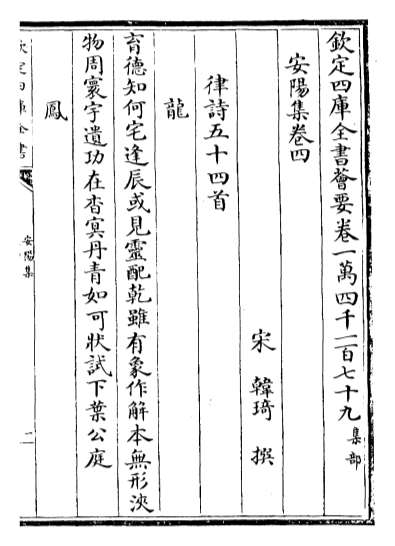 欽定四庫全書薈要卷一萬四千一百七十九集部
安陽集卷四
宋韓琦撰
律詩五十四首
龍
育德知何宅逢辰或見靈配乾雖有象作解本無形浹
物周寰宇遺功在杳冥丹青如可狀試下葉公庭
鳳
欽定四庫全書
安陽集